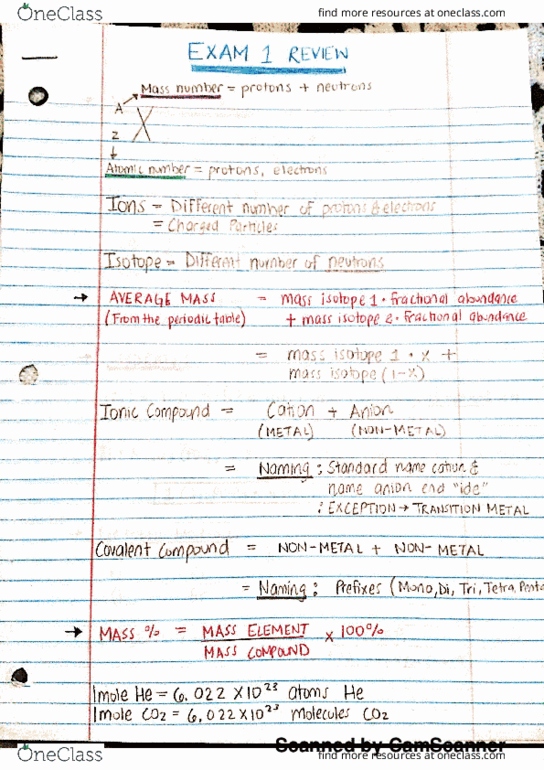 OneClass
find more resources at oneclass.com
EXAM 1 REVIEW
Mass number = protons + neutrons
A
X
Z
Atomic number = protons, electrons
Ions = Different number of protons & electrons
= Charged Particles
Isotope = Different number of neutrons
→ AVERAGE MASS = mass isotope 1 · fractional abundance
(From the periodic table) + mass isotope 2 · fractional abundance
= mass isotope 1 · x +
mass isotope (1-x)
Ionic Compound = Cation + Anion
(METAL) (NON-METAL)
= Naming : Standard name cation &
name anion end "ide"
: EXCEPTION → TRANSITION METAL
Covalent Compound = NON-METAL + NON-METAL
= Naming : Prefixes (Mono, Di, Tri, Tetra, Penta
→ MASS % = MASS ELEMENT × 100%
MASS COMPOUND
1 mole He = 6.022 X10²³ atoms He
1 mole CO2 = 6.022 X10²³ molecules CO2
Scanned by CamScanner
OneClass
find more resources at oneclass.com